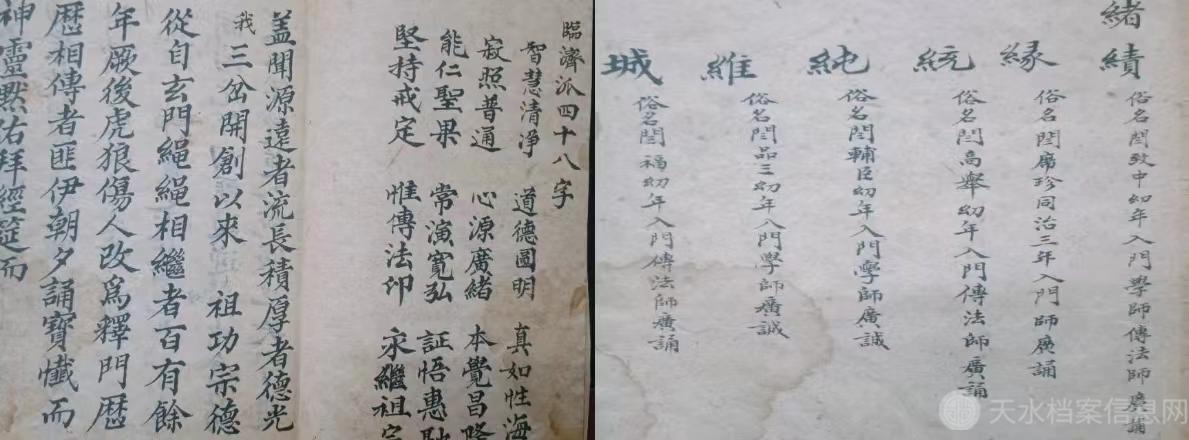 臨濟派四十八字
智慧清淨 道德圓明 真如性海
寂照普通 心源廣緒 本覺昌
能仁聖果 常演寬弘 証悟惠
堅持戒定 惟傳法印 永繼祖
盖聞源遠者流長積厚者德光
我三岔開創以來 祖功宗德
從自玄門繩繩相繼者百有餘
年厥後虎狼傷人改爲釋門歴
歴相傳者匪伊朝夕誦寶懺而
神靈默佑拜經筵而
緒
績 俗名閆致中幼年入門學師傳法師廣誦
緣 俗名閆廣珍同治三年入門師廣誦
統 俗名閆高舉幼年入門傳法師廣誦
純 俗名閆輔臣幼年入門學師廣誠
維 俗名閆品三幼年入門學師廣誠
城 俗名閆福幼年入門傳法師廣誦
天水档案信息网